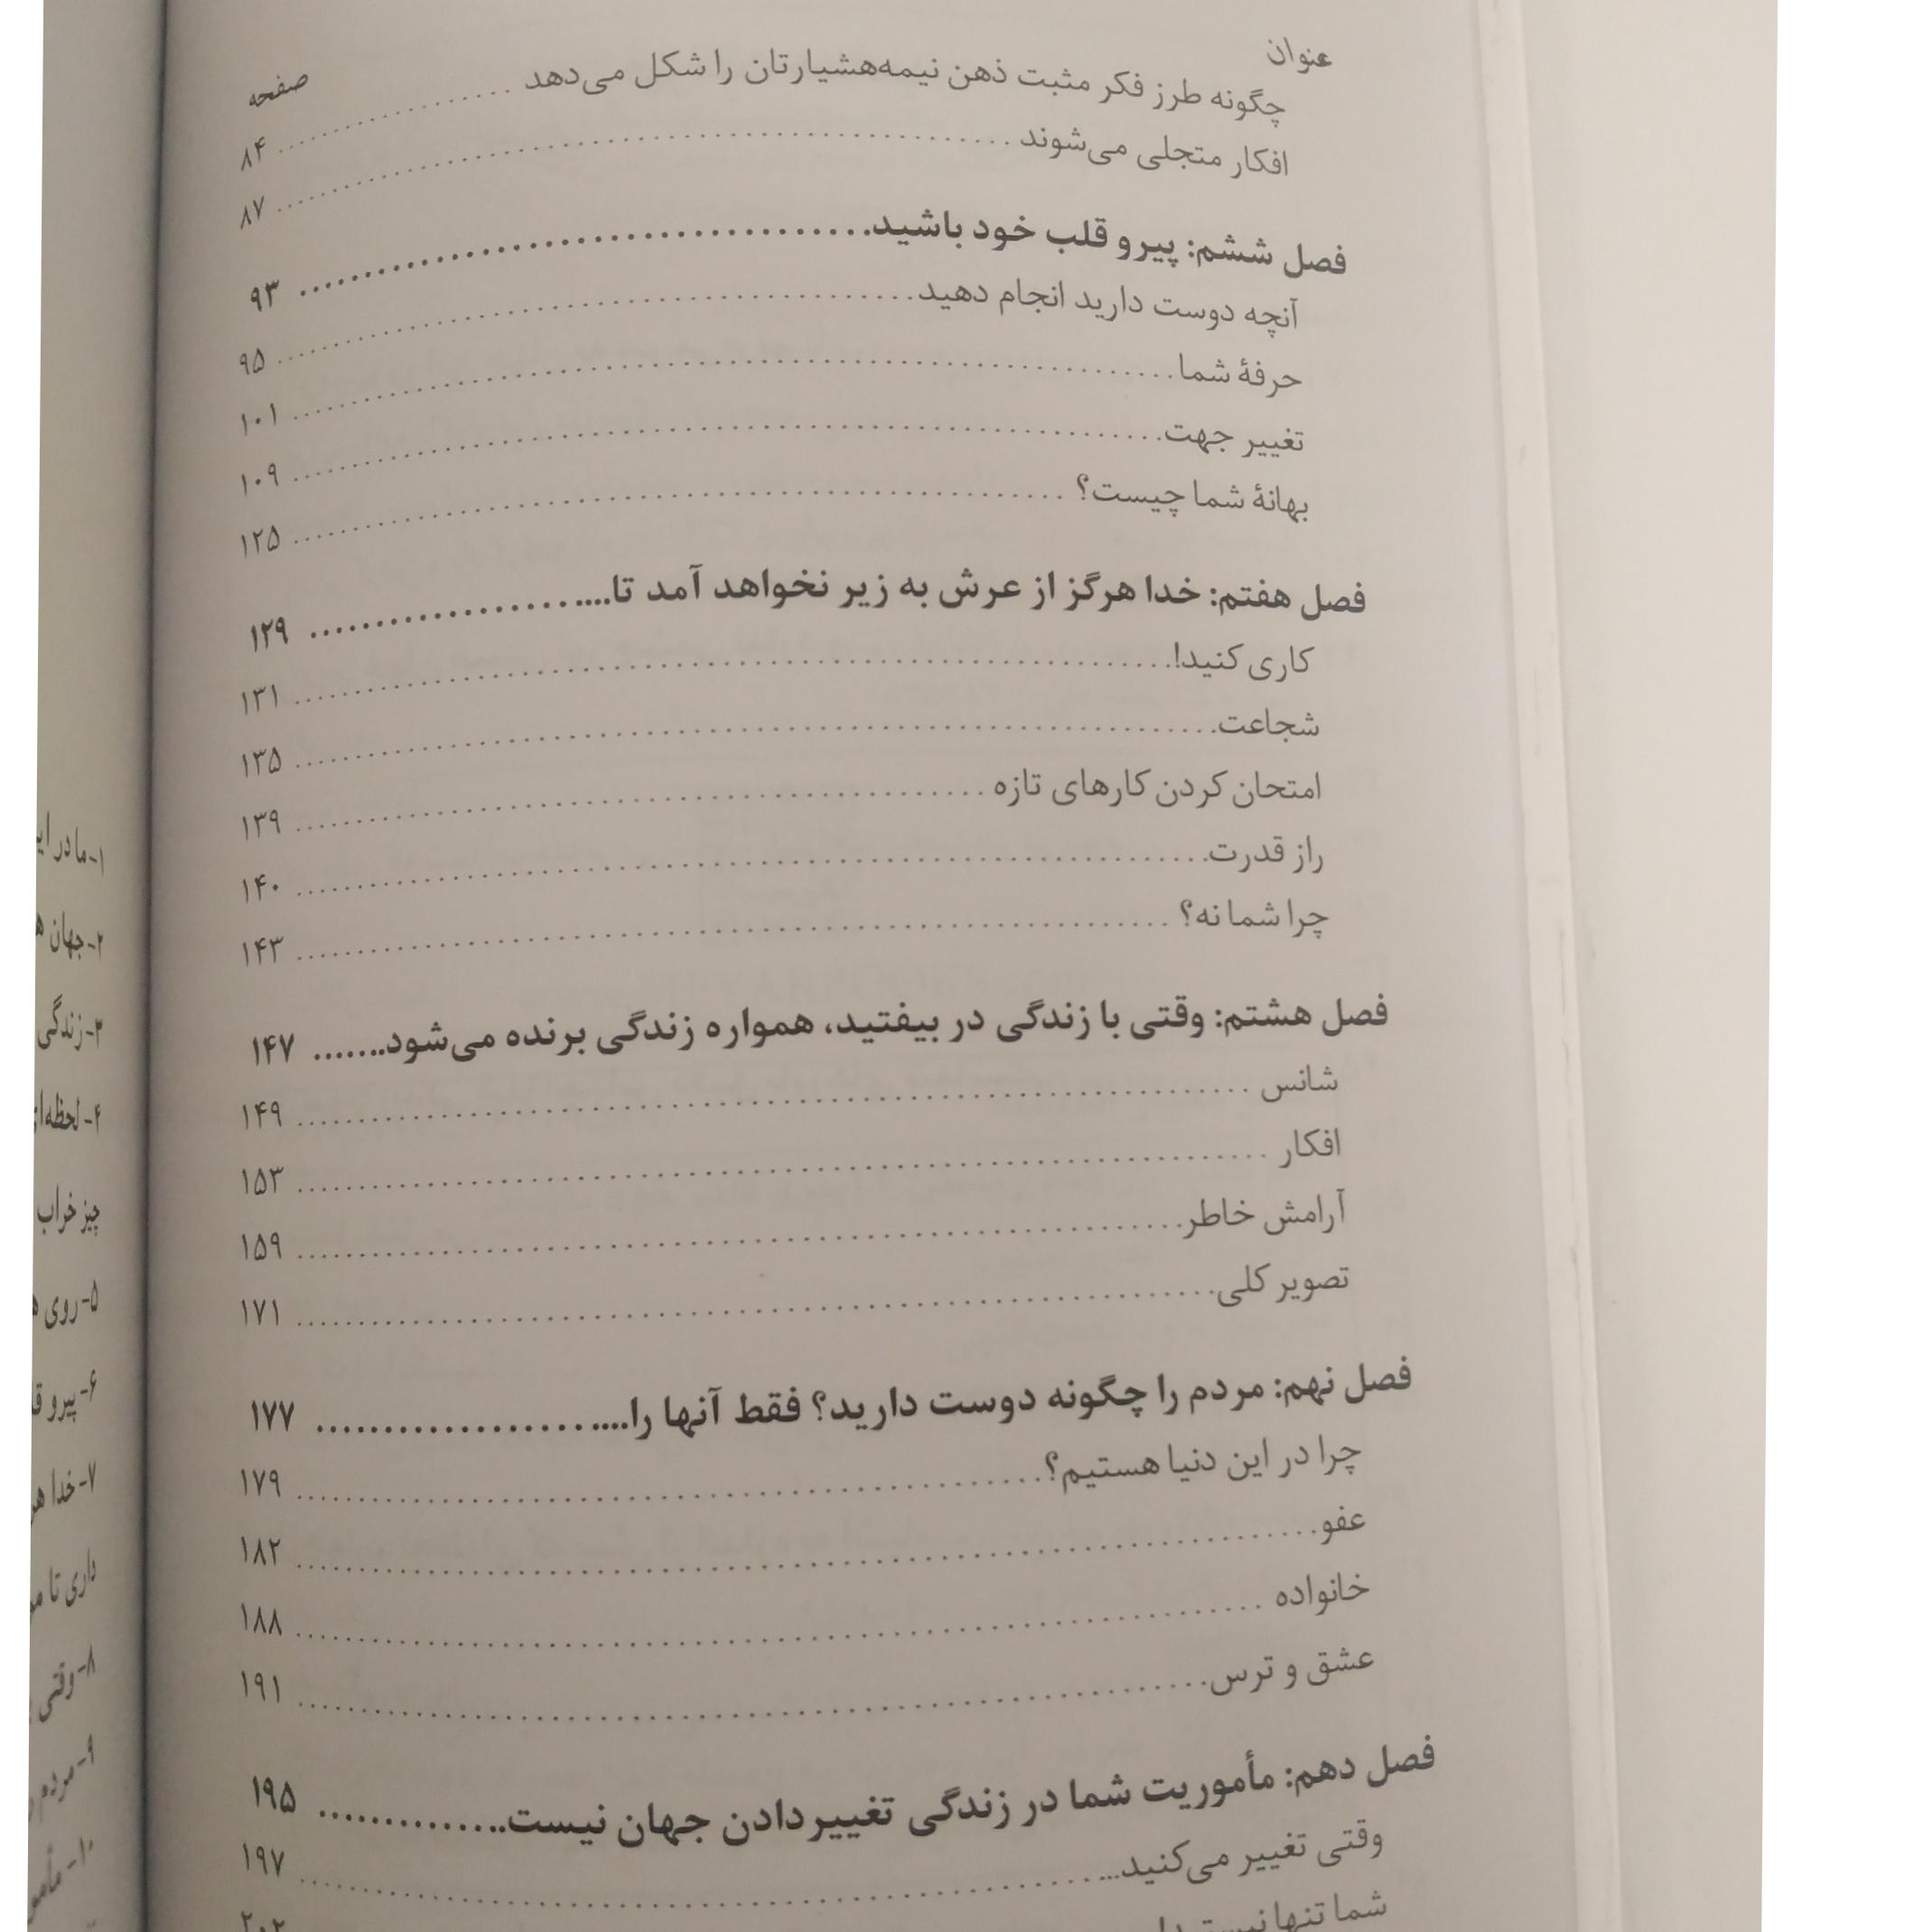 عنوان صفحه
چگونه طرز فکر مثبت ذهن نیمه‌هشیارتان را شکل می‌دهد ........ ۸۴
افکار متجلی می‌شوند ........ ۸۷
فصل ششم: پیرو قلب خود باشید ........ ۹۳
آنچه دوست دارید انجام دهید ........ ۹۵
حرفهٔ شما ........ ۱۰۱
تغییر جهت ........ ۱۰۹
بهانهٔ شما چیست؟ ........ ۱۲۵
فصل هفتم: خدا هرگز از عرش به زیر نخواهد آمد تا.... ........ ۱۲۹
کاری کنید! ........ ۱۳۱
شجاعت ........ ۱۳۵
امتحان کردن کارهای تازه ........ ۱۳۹
راز قدرت ........ ۱۴۰
چرا شما نه؟ ........ ۱۴۳
فصل هشتم: وقتی با زندگی در بیفتید، همواره زندگی برنده می‌شود ........ ۱۴۷
شانس ........ ۱۴۹
افکار ........ ۱۵۳
آرامش خاطر ........ ۱۵۹
تصویر کلی ........ ۱۷۱
فصل نهم: مردم را چگونه دوست دارید؟ فقط آنها را.... ........ ۱۷۷
چرا در این دنیا هستیم؟ ........ ۱۷۹
عفو ........ ۱۸۲
خانواده ........ ۱۸۸
عشق و ترس ........ ۱۹۱
فصل دهم: مأموریت شما در زندگی تغییردادن جهان نیست ........ ۱۹۵
وقتی تغییر می‌کنید... ........ ۱۹۷
شما تنها ۲۰۲
۱- ما در
۲- جهان
۳- زندگی
۴-
چیز خراب
۵- روی
۶- پیرو
۷- خدا
داری تا
۸- وقتی
۹- مردم
۱۰-